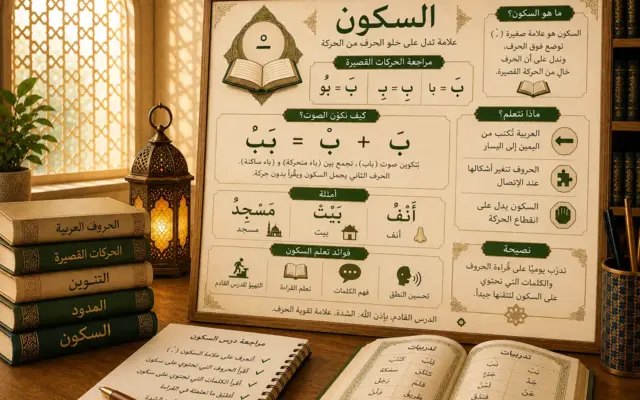 السكون
علامة تدل على خلو الحرف من الحركة
مراجعة الحركات القصيرة
بَ = با
بَ = بِ
بَ = بُو
ما هو السكون؟
السكون هو علامة صغيرة ( ْ )
توضع فوق الحرف،
وتدل على أن الحرف
خالٍ من الحركة القصيرة.
كيف نكوّن الصوت؟
بَ + بْ = بَبُ
لتكوين صوت (باب)، تجمع بين (باء متحركة) و (باء ساكنة).
الحرف الثاني يحمل السكون ويقرأ بدون حركة.
ماذا نتعلم؟
العربية تُكتب من
اليمين إلى اليسار
الحروف تتغير أشكالها
عند الإتصال
السكون يدل على
انقطاع الحركة
أمثلة
أَنْفُ
أنف
بَيْتْ
بيت
مَسْجِدُ
مسجد
فوائد تعلم السكون
تحسين النطق
فهم الكلمات
تعلم القراءة
التهيؤ للدرس القادم
نصيحة
تدرّب يوميًا على قراءة الحروف
والكلمات التي تحتوي
على السكون لتتقنها جيداً.
الدرس القادم، بإذن الله: الشدة، علامة تقوية الحرف.
الحروف العربية
الحركات القصيرة
التنوين
المدود
السكون
مراجعة درس السكون
أتعرف على علامة السكون ( ْ )
أقرأ الحروف التي تحتوي على سكون
أقرأ الكلمات التي تحتوي على سكون
تدريبات
تدريبات